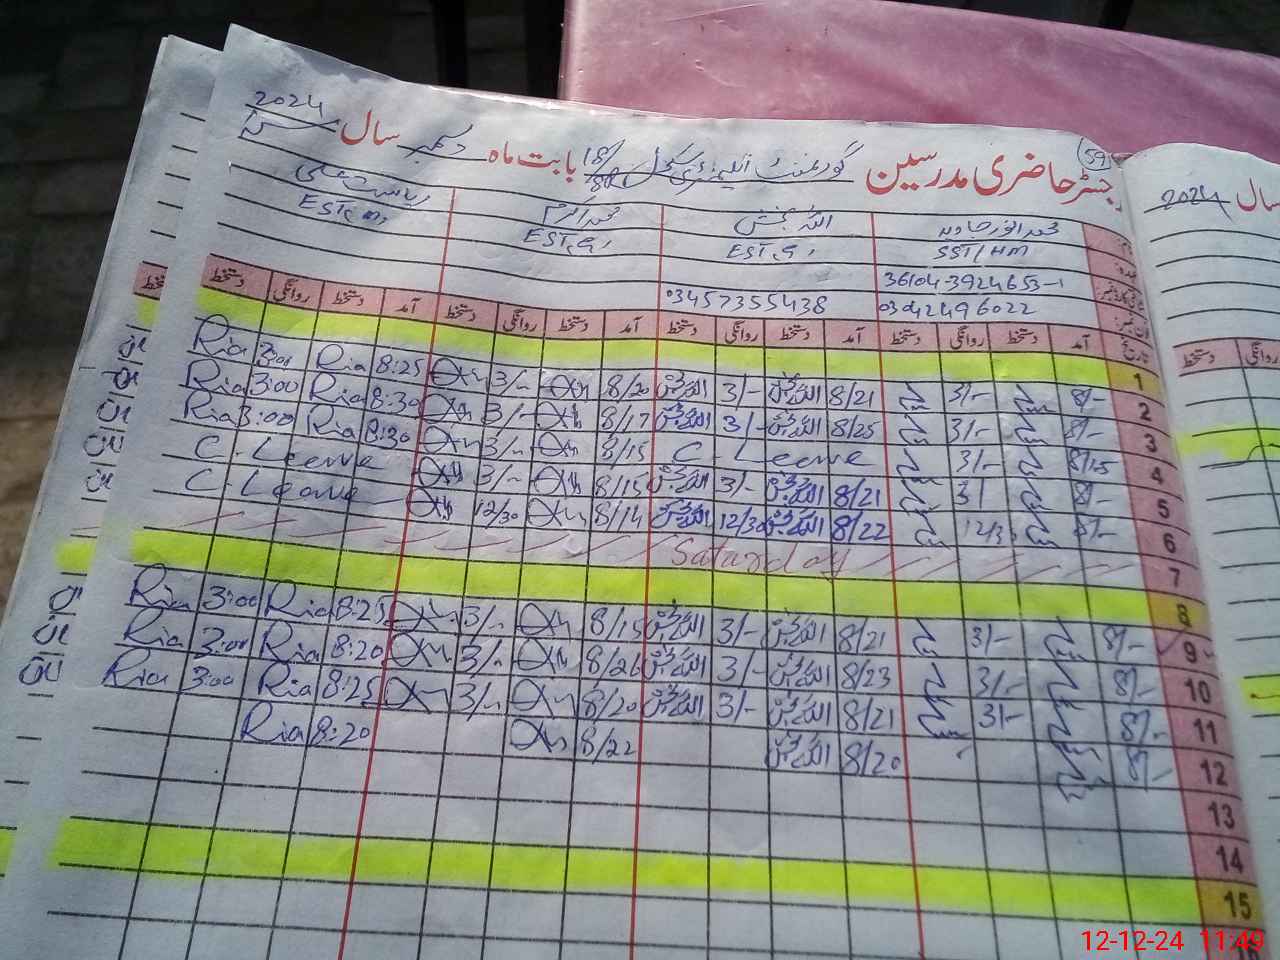 59
رجسٹر حاضری مدرسین گورنمنٹ ایلیمنٹری سکول 18/8R بابت ماہ دسمبر سال 2024
سال 2024
محمد انور جاوید اللہ بخش محمد اکرم ریاست علی
SST/HM EST, G, EST, G, EST(M)
36104-3924653-1
03042496022 03457355438
تاریخ آمد دستخط روانگی دستخط آمد دستخط روانگی دستخط آمد دستخط روانگی دستخط آمد دستخط روانگی دستخط
دستخط روانگی
1
2 8/- 3/- 8/21 اللہ بخش 3/- اللہ بخش 8/20 3/- 8:25 Ria 3:00 Ria
3 8/- 3/- 8/25 اللہ بخش 3/- اللہ بخش 8/17 3/- 8:30 Ria 3:00 Ria
4 8/25 3/- C. Leave 8/15 3/- 8:30 Ria 3:00 Ria
5 8/- 3/ 8/21 اللہ بخش 3/- اللہ بخش 8/15 3/- C. Leave
6 8/- 12/30 8/22 اللہ بخش 12/30 اللہ بخش 8/14 12/30 C. Leave
7 Saturday
8
9 8/- 3/- 8/21 اللہ بخش 3/- اللہ بخش 8/15 3/- 8:25 Ria 3:00 Ria
10 8/- 3/- 8/23 اللہ بخش 3/- اللہ بخش 8/26 3/- 8:20 Ria 3:00 Ria
11 8/- 3/- 8/21 اللہ بخش 3/- اللہ بخش 8/20 3/- 8:25 Ria 3:00 Ria
12 8/- 8/20 اللہ بخش 8/22 8:20 Ria
13
14
15
12-12-24 11:49